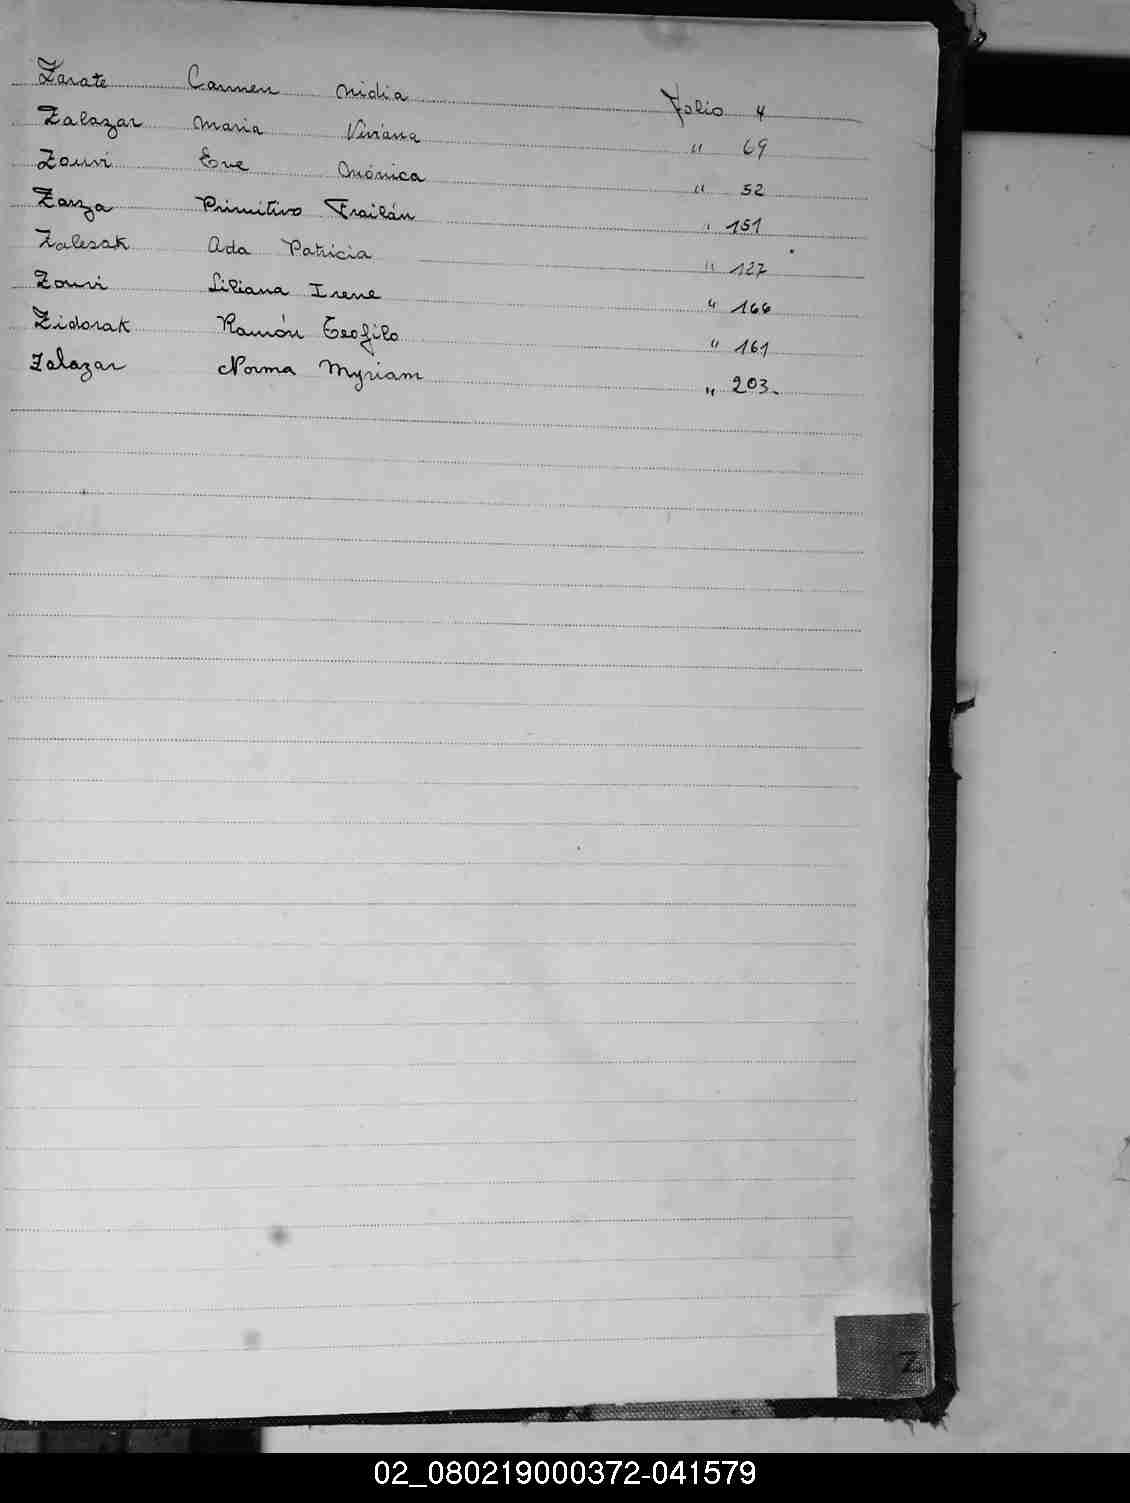 Zarate Carmen Nidia Folio 4
Zalazar Maria Viviana " 69
Zouvi Eve Mónica " 52
Zarza Primitivo Frailán " 151
Zalesak Ada Patricia " 127
Zouvi Liliana Irene " 166
Zidorak Ramón Teofilo " 161
Zalazar Norma Myriam " 203.
Z
02_080219000372-041579